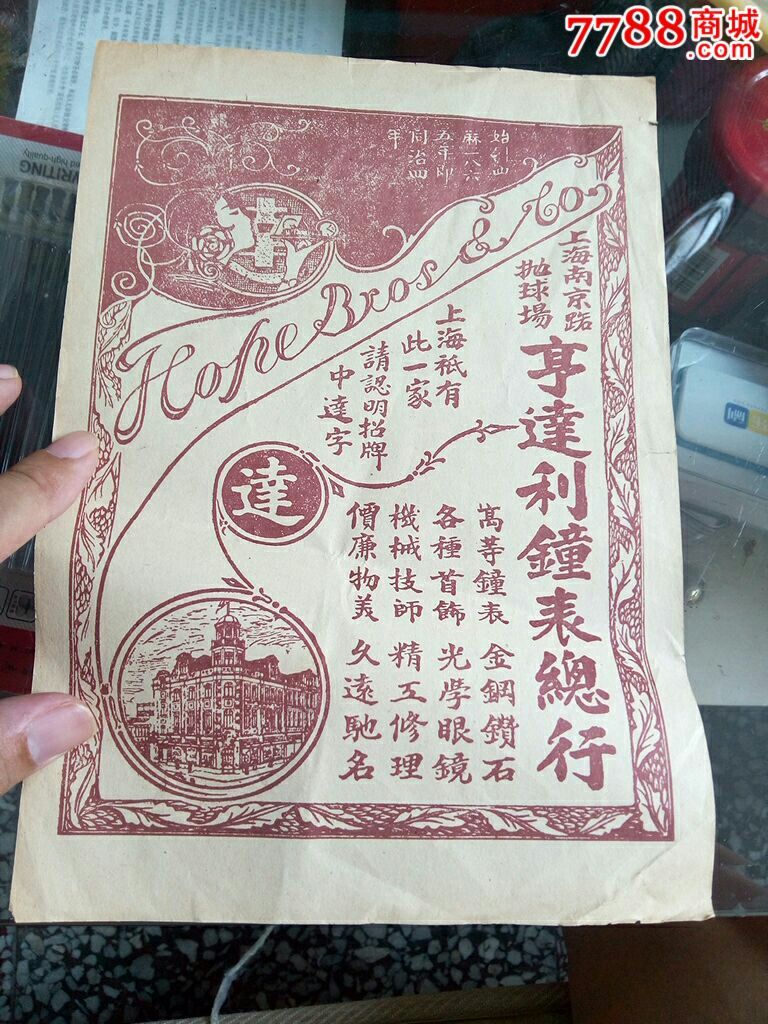 7788商城
.com
WRITING
始創西
厤一八六
五年即
同治四
年
Hope Bros & Co
上海南京路
抛球場
亨達利鐘表總行
上海祇有
此一家
請認明招牌
中達字
達
萬等鐘表 金鋼鑽石
各種首飾 光學眼鏡
機械技師 精工修理
價廉物美 久遠馳名